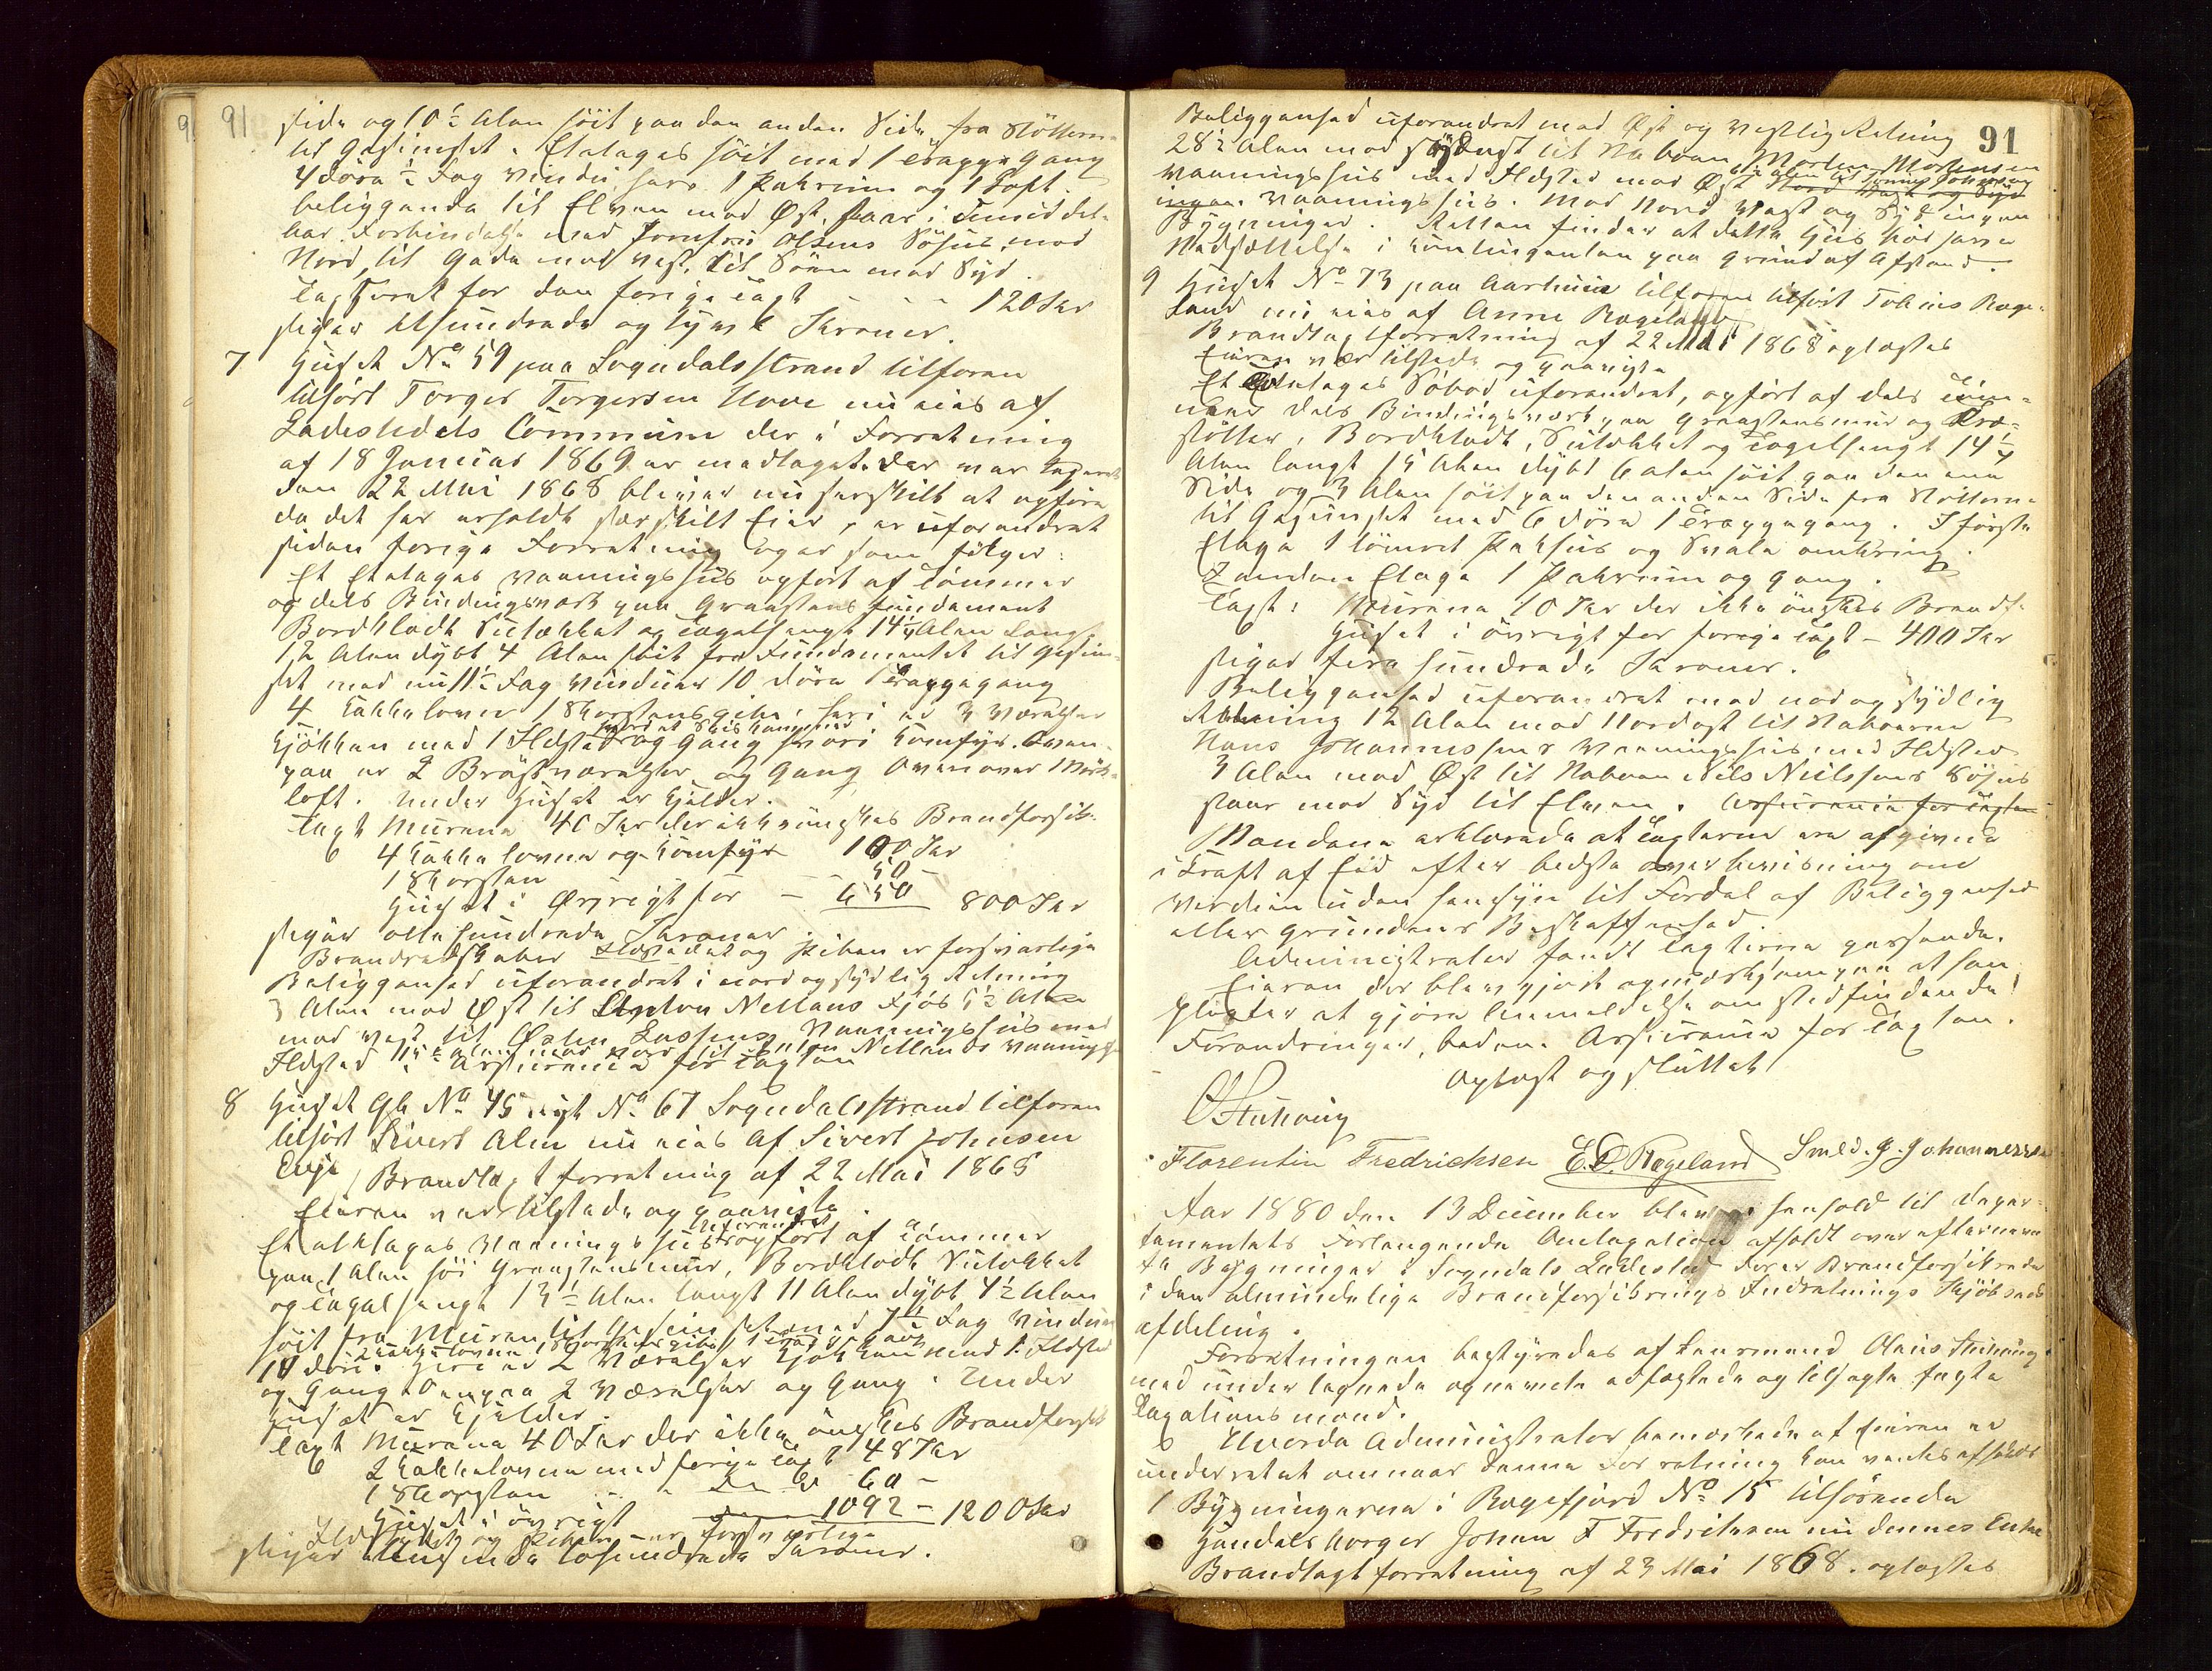 91
side og 10½ Alen höit paa den anden Side fra Stötterne
til Gesimset. Etetages höit med 1 Trappegang
4 döre ½ Fag Vindu, heri 1 Pakrum og 1 Loft.
beliggende til Elven mod Öst, staar i umiddel-
bar Forbindelse med Jomfru Olsens Söhus mod
Nord, til Gade mod Vest, til mod Syd.
Taxeret for den forige Taxt - - - 120 Kr
siger Ethundrede og tyve Kroner.
7 Huset No 59 paa Sogndalsstrand tilforen
tilhört Torger Torgersen Hove nu eies af
Ladestedets Commune der i Forretning
af 18 Januar 1869 er medtaget. der var taxeret
den 22 Mai 1868 bliver nu særskilt at opföre
da det har erholdt særskilt Eier, er uforandret
siden forige Forretning og er som fölger:
Et Etetages Vaaningshus opfört af Tömmer
og dels Bindingsverk paa Graastens fundament
Bordklædt Sutækket og Tagethængt 14¼ Alen Langt
12 Alen dybt 4 Alen höit fra Fundamentet til Gesim-
set med nu 11½ Fag Vinduer 10 döre 1 Trappegang
4 Kakkelovne 1 Skorstenspibe, heri er 3 Værelser
Kjökken med 1 Ildsted og Gang hvori Komfyr. Oven-
paa er 2 Bröstværelser og Gang Ovenover Mörk-
loft. Under Huset er Kjelder.
Taxt Murene 40 Kr der ikke önskes Brandforsik.
4 Kakkelovne og Komfyr 100 Kr
1 Skorsten - 50 -
Huset i Övrigt for - 650 800 Kr
siger otte hundrede Kroner.
Brandredskaber Ildstedet og Piben er forsvarlige
Beliggenhed uforandret i nord og sydlig Retning
3 Alen mod Öst til Anton Nellans Fjös 5½ Alen
mod Vest til Østen Lassens Vaaningshus med
Ildsted 15½ Alen mod Nord til Anton Nellands Vaaningshus
Assurance for Taxten
8 Huset Gl. No 45 nyt No 67 Sogndalsstrand tilforen
tilhört Sivert Alen nu eies af Sivert Johnsen
Evje, Brandtaxtforretning af 22 Mai 1868
Eieren var tilstede og paaviste.
Et etetages Vaaningshus uforandret opfört af Tömmer
paa 1 Alen höi Graastensmur, Bordklædt Sutækket
og Tagethængt 13½ Alen langt 11 Alen dybt 4½ Alen
höit fra Muren til Gesimset med 7½ Fag Vinduer
2 Kakkelovne 1 Skorstenspibe 1 Trappegang
10 döre. Heri er 2 Værelser Kjökken med 1 Ildsted
og Gang Ovenpaa 2 Værelser og Gang. Under
Huset er Kjelder.
Taxt Murene 40 Kr der ikke önskes Brandforsik
2 Kakkelovne med forige Taxt 48 Kr
1 Skorsten - - 60 -
Huset i övrigt 1092 - 1200 Kr
Ildstedet og Piben er forsvarlige
siger Ettusinde tohundrede Kroner.
91
Beliggenhed uforandret med Öst og Vestlig Retning
28½ Alen mod Sydost til Naboen Morten Mortensen
Vaaningshus med Ildsted mod Öst
Vaaningshus. Mod Nord Vest og Syd ingen
Bygninger. Retten finder at dette Hus bör have
Nedsættelse i Kontingenten paa Grund af Afstand.
9 Huset No 73 paa Aarhuus tilforen tilhört Tobias Roge-
land nu eies af Anne Rægeland
Brandtaxtforretning af 22 Mai 1868 oplæstes
Eieren var tilstede og paaviste
Et Toetages Söbod uforandret, opfört af dels Töm-
mer dels Bindingsverk paa Graastensmur og Træ-
stötter, Bordklædt, Sutækket og Tagethængt 14¼
Alen langt 15 Alen dybt 6 alen höit paa den ene
Side og 3 Alen höit paa den anden Side fra Stötterne
til Gesimset med 6 döre 1 Trappegang. I förste
Etage 1 tömret Pakhus og Svale omkring.
I anden Etage 1 Pakrum og Gang.
Taxt: Murene 10 Kr der ikke önskes Brandf.
Huset i övrigt for forige Taxt - 400 Kr
siger fire hundrede Kroner.
Beliggenhed uforandret med nord og sydlig
Retning 12 Alen mod Nordost til Naboerne
Hans Johannessens Vaaningshus med Ildsted
3 Alen mod Öst til Naboen Nils Nielssens Söhus
staar mod Syd til Elven. Assurance for Taxten
Mændene erklærede at Taxterne ere afgivne
i Kraft af Eed efter bedste Overbevisning om
Verdien uden hensyn til Fordel af Beliggenhed
eller Grundens Beskaffenhed.
Administrator fandt Taxterne passende.
Eieren der blev gjort opmærksom paa at han
pligter at gjöre Anmeldelse om stedfindende
Forandringer, beder. Assurance for Taxten.
Oplæst og sluttet
O Stuhaug
Florentin Fredrichsen E. O. Rægeland Smed. G. Johannessen
Aar 1880 den 13 December blev i henhold til Depar-
tementets Forlangende Omtaxation afholdt over efternævn
te Bygninger i Sogndals Ladested der er Brandforsikrede
i den almindelige Brandforsikrings Indretnings Kjöbsteds
afdeling.
Forretningen bestyredes af Lensmand Olaus Stuhaug
med underlagnede opnævnte edfæstede og tilsagte faste
Taxationsmænd.
Hvorda Administrator bemærkede at Eieren er
underrettet om naar denne Forretning kan ventes afholdt
1 Bygningerne i Rægefjord No 15 tilhörende
Handelsborger Johan F Fredriksen nu dennes Enke
Brandtaxtforretning af 23 Mai 1868. oplæstes